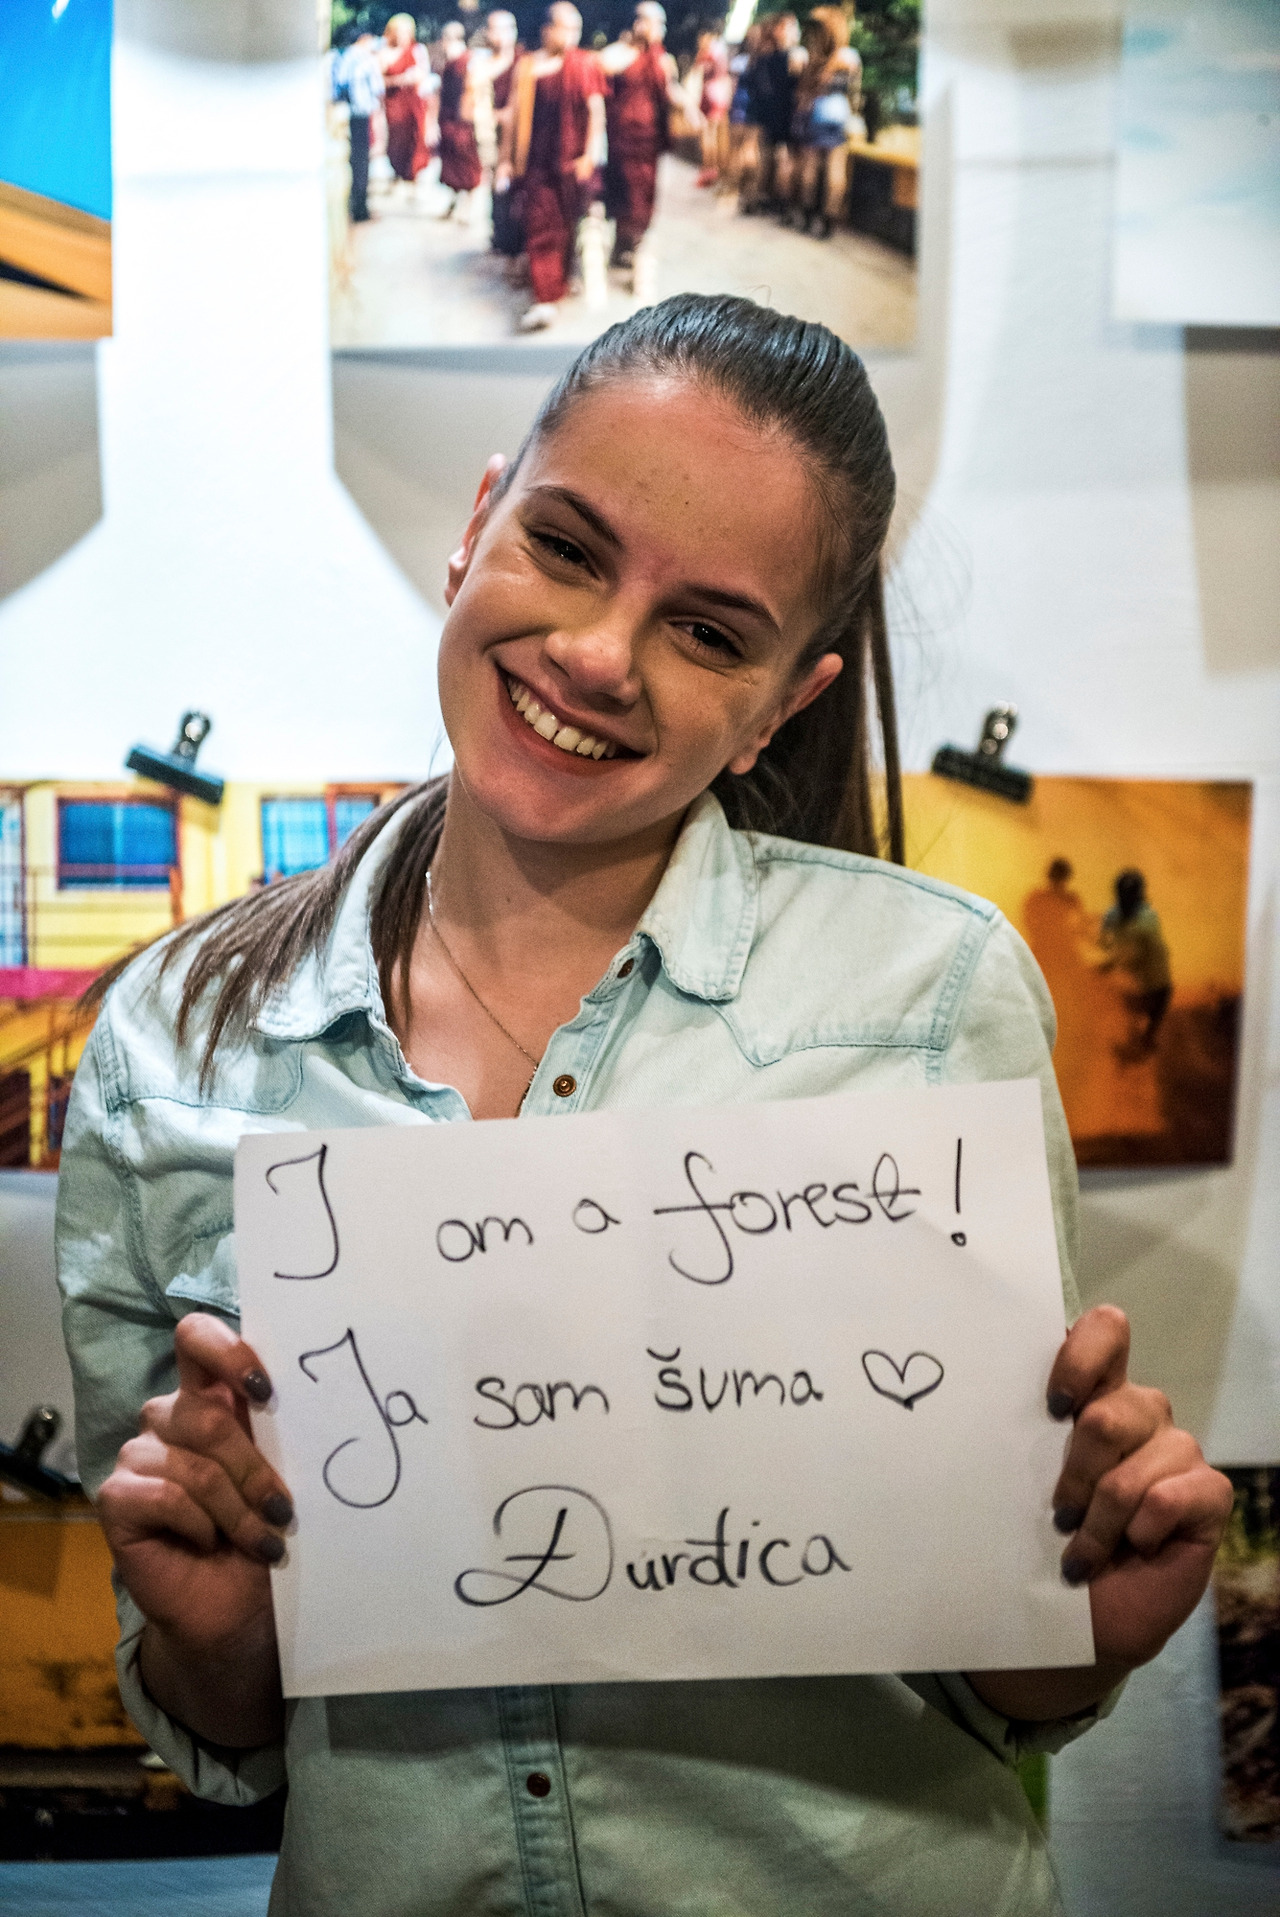 I am a forest!
Ja sam šuma ♡
Đurđica